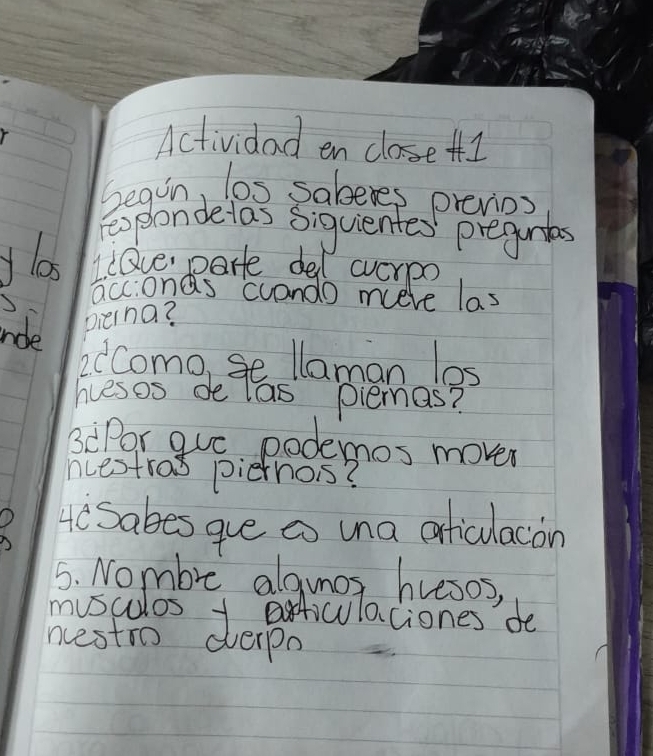 Actividad en clase #1
Según los saberes previos
responde las siguientes preguntas
1.¿Que parte del cuerpo
accionas cuando mueve las
pierna?
2¿Como se llaman los
huesos de las piernas?
3¿Por que podemos mover
nuestras piernas?
4¿Sabes que es una articulación
5. Nombre algunos huesos,
musculos y articulaciones de
nuestro cuerpo
y los
s
nde